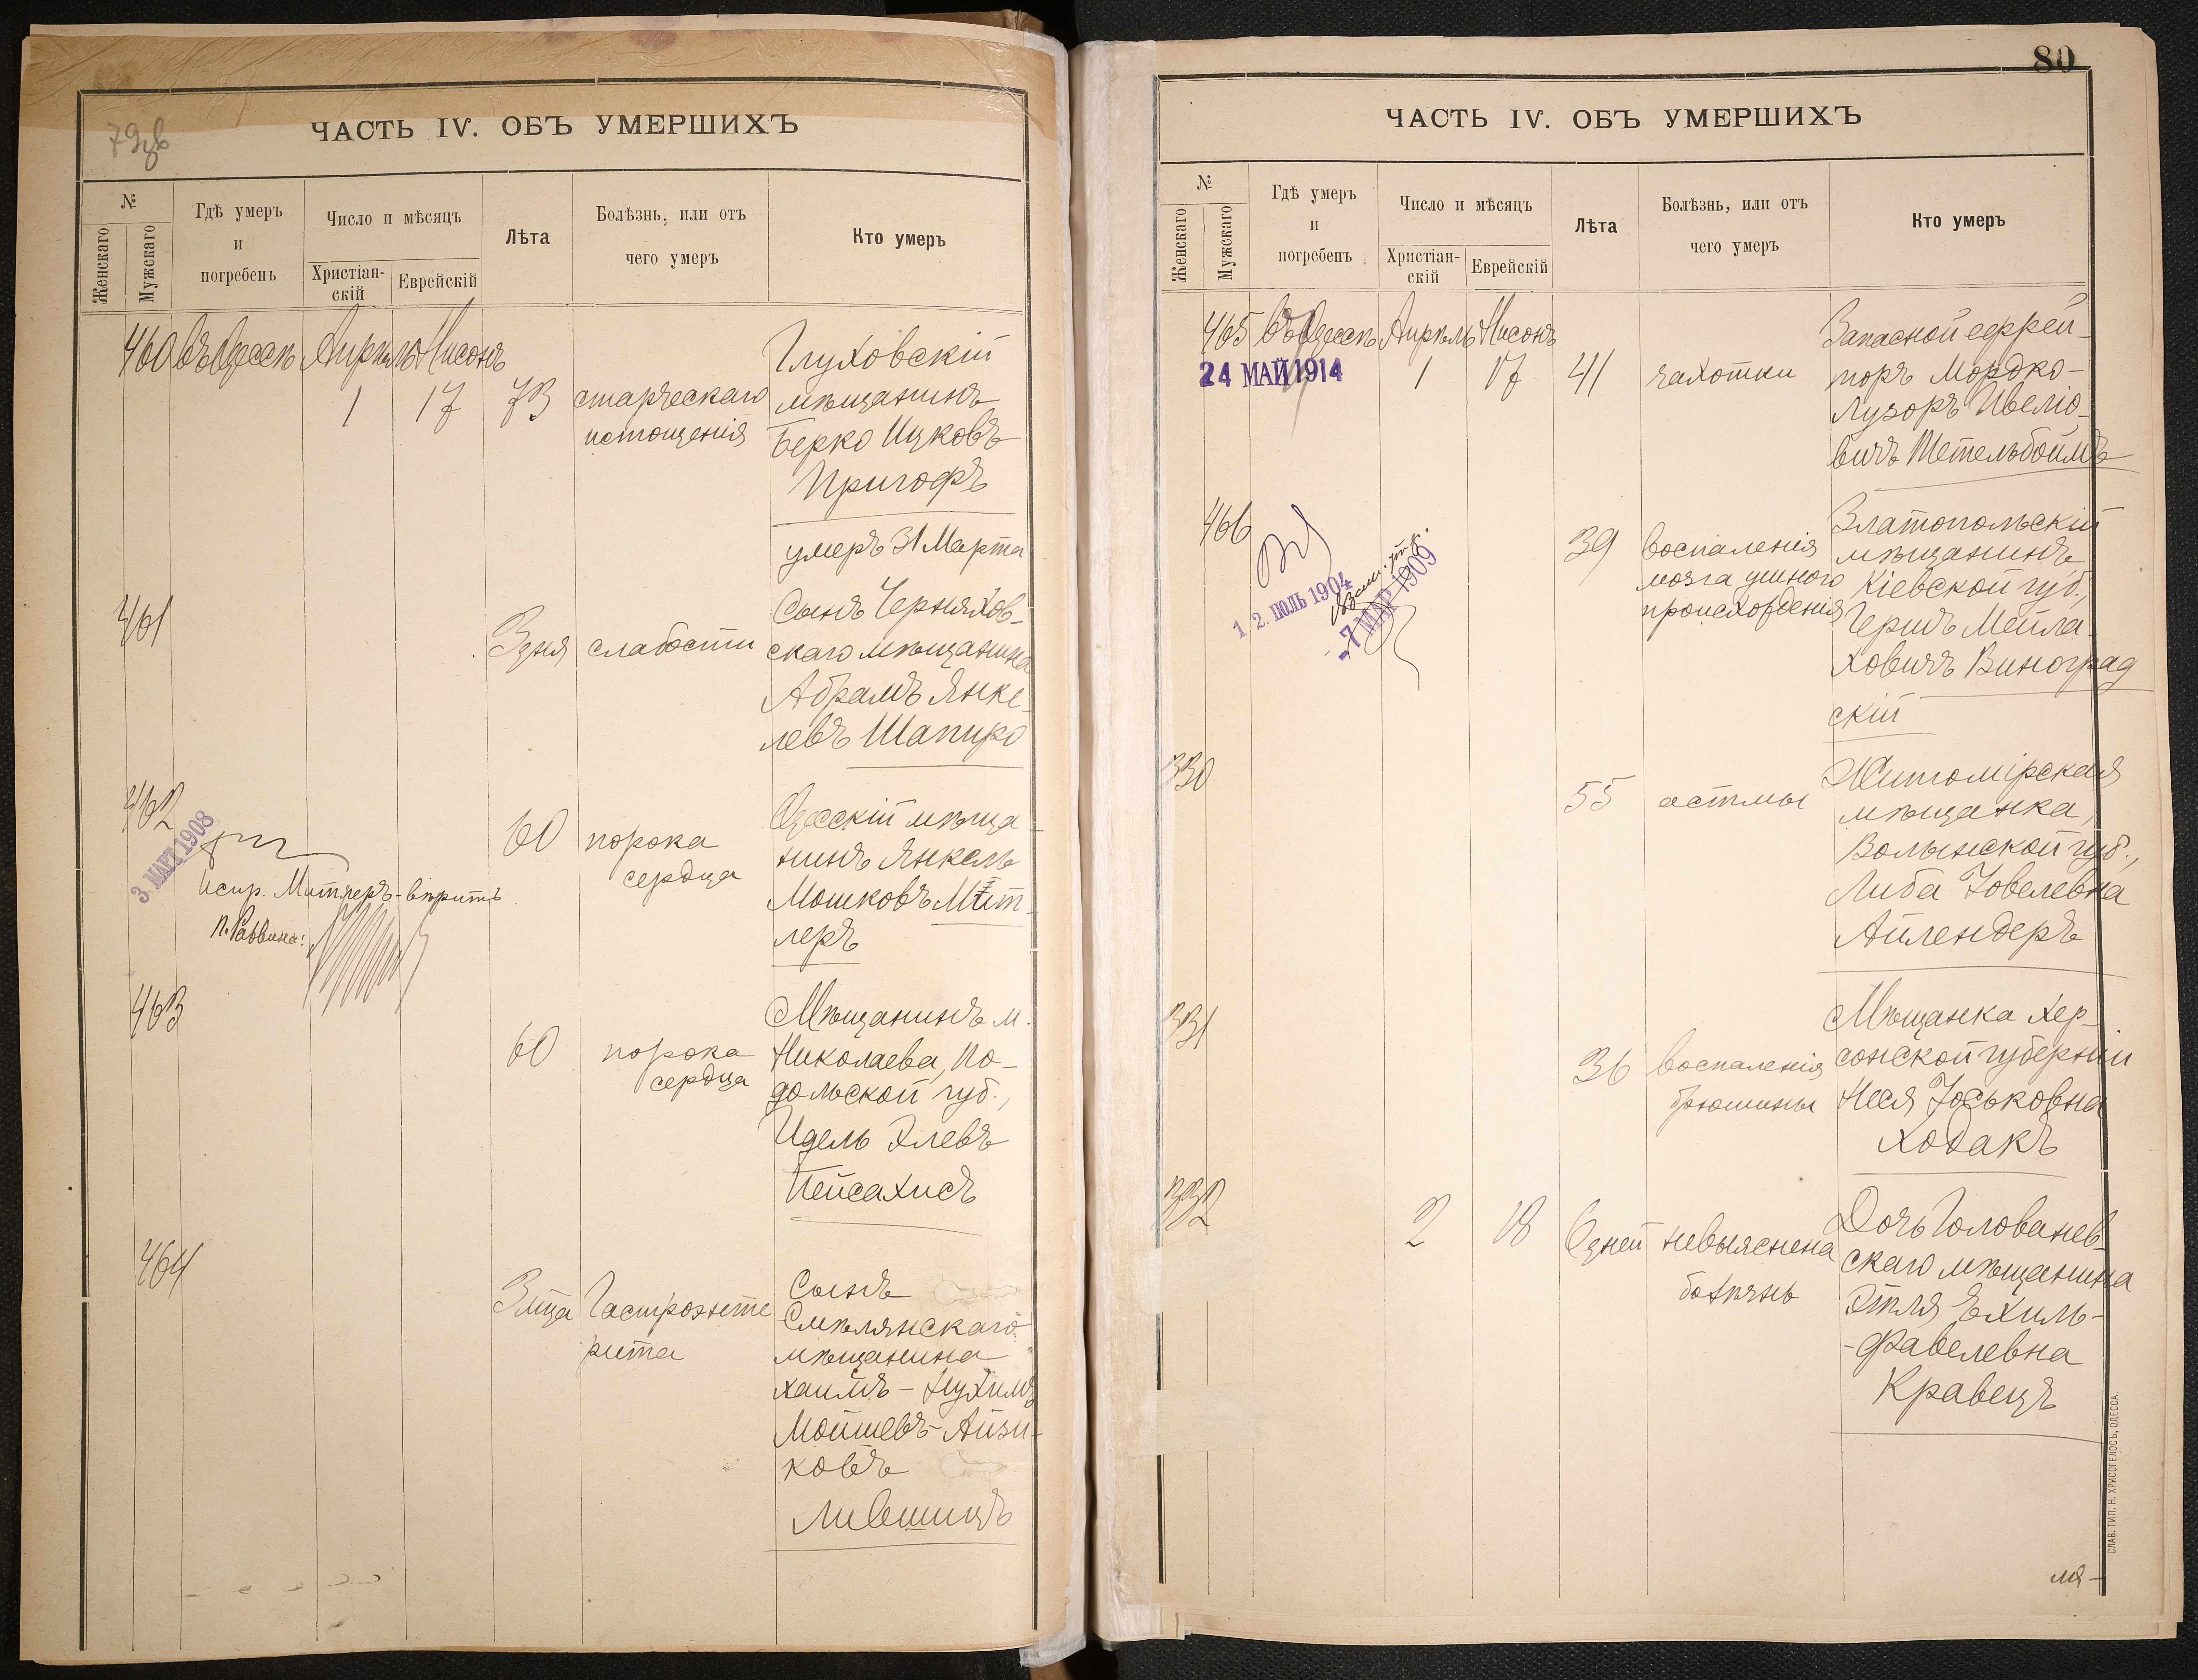 79зв
ЧАСТЬ IV. ОБЪ УМЕРШИХЪ
№
Женскаго
Мужскаго
Гдѣ умеръ
и
погребенъ
Число и мѣсяцъ
Христіан-
скій
Еврейскій
Лѣта
Болѣзнь, или отъ
чего умеръ
Кто умеръ
460 въ Одессѣ Апрѣль Нисонъ
1 17 73 старческаго
истощенія
Глуховскій
мѣщанинъ
Берко Ицковъ
Пригофъ
умеръ 31 Марта
461
3 дня слабости
Сынъ Черняхов-
скаго мѣщанина
Абрамъ Янке-
левъ Шапиро
462
3. МАРТ 1908
60 порока
сердца
Одесскій мѣща-
нинъ Янкель
Мошковъ Мит-
леръ
Испр. Митлеръ - вѣритъ
П. Раввина:
463
60 порока
сердца
Мѣщанинъ м.
Николаева, По-
дольской губ.,
Идель Элевъ
Пейсахисъ
464
3 м̃ца Гастроэнте
рита
Сынъ
Смѣлянскаго
мѣщанина
Хаимъ - Нухимъ
Мойшевъ - Айзи-
ковъ
Лившицъ
80
ЧАСТЬ IV. ОБЪ УМЕРШИХЪ
№
Женскаго
Мужскаго
Гдѣ умеръ
и
погребенъ
Число и мѣсяцъ
Христіан-
скій
Еврейскій
Лѣта
Болѣзнь, или отъ
чего умеръ
Кто умеръ
465 въ Одессѣ Апрѣль Нисонъ
24 МАЙ 1914
1 17 41 чахотки
Запасной ефрей-
торъ Мордко-
Лузоръ Ивеліо-
вичъ Тетельбоймъ
466
12. ІЮЛЬ 1904
-7 МАР 1909
39 воспаленія
мозга ушного
происхожденія
Златопольскій
мѣщанинъ,
Кіевской губ.,
Гершъ Мейла-
ховичъ Виноград
скій
330
55 астмы
Житомірская
мѣщанка,
Волынской губ.,
Либа Іовелевна
Айлендеръ
331
36 воспаленія
брюшины
Мѣщанка Хер-
сонской губерніи
Неся Іоськовна
Ходакъ
332
2 18 6 дней невыяснена
болѣзнь
Дочь Голованев-
скаго мѣщанина
Этля Ехиль-
-Фавелевна
Кравецъ
СЛАВ. ТИП. Н. ХРИСОГЕЛОСЪ, ОДЕССА.